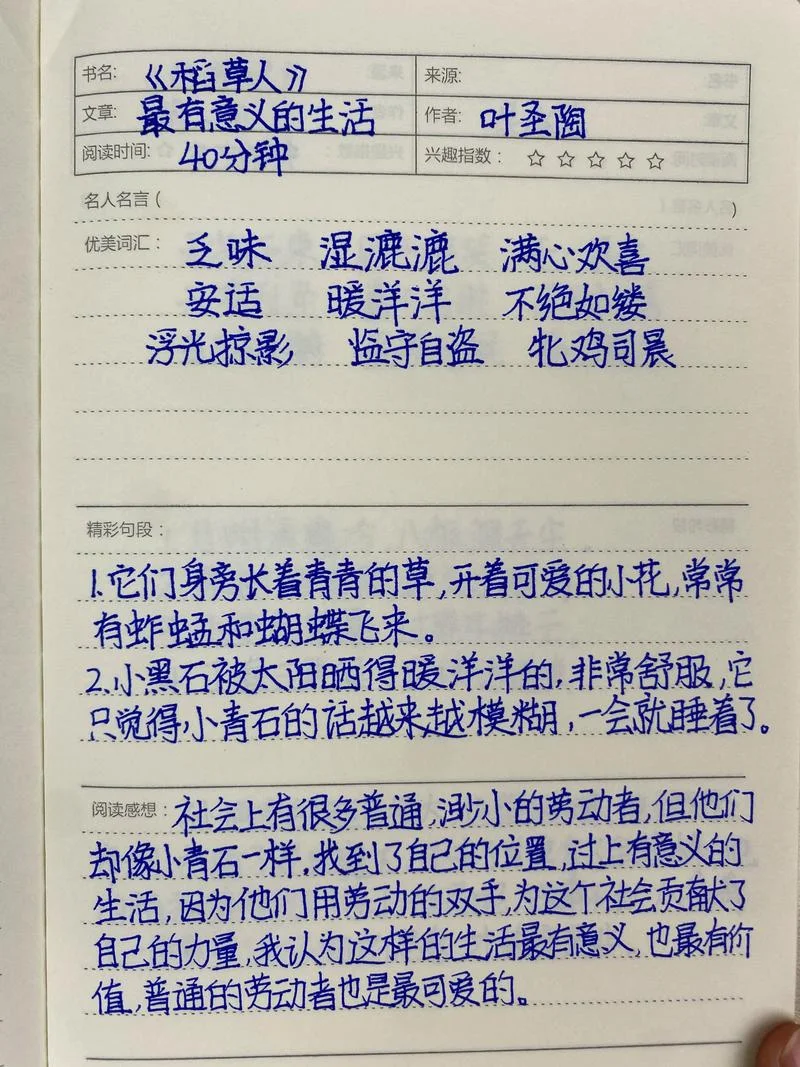 书名: 《稻草人》 来源:
文章: 最有意义的生活 作者: 叶圣陶
阅读时间: 40分钟 兴趣指数: ☆ ☆ ☆ ☆ ☆
名人名言 ( )
优美词汇: 乏味 湿漉漉 满心欢喜
安适 暖洋洋 不绝如缕
浮光掠影 监守自盗 牝鸡司晨
精彩句段:
1.它们身旁长着青青的草,开着可爱的小花,常常
有蚱蜢和蝴蝶飞来。
2.小黑石被太阳晒得暖洋洋的,非常舒服,它
只觉得,小青石的话越来越模糊,一会就睡着了。
阅读感想: 社会上有很多普通,渺小的劳动者,但他们
却像小青石一样,找到了自己的位置,过上有意义的
生活,因为他们用劳动的双手,为这个社会贡献了
自己的力量,我认为这样的生活最有意义,也最有价
值,普通的劳动者也是最可爱的。